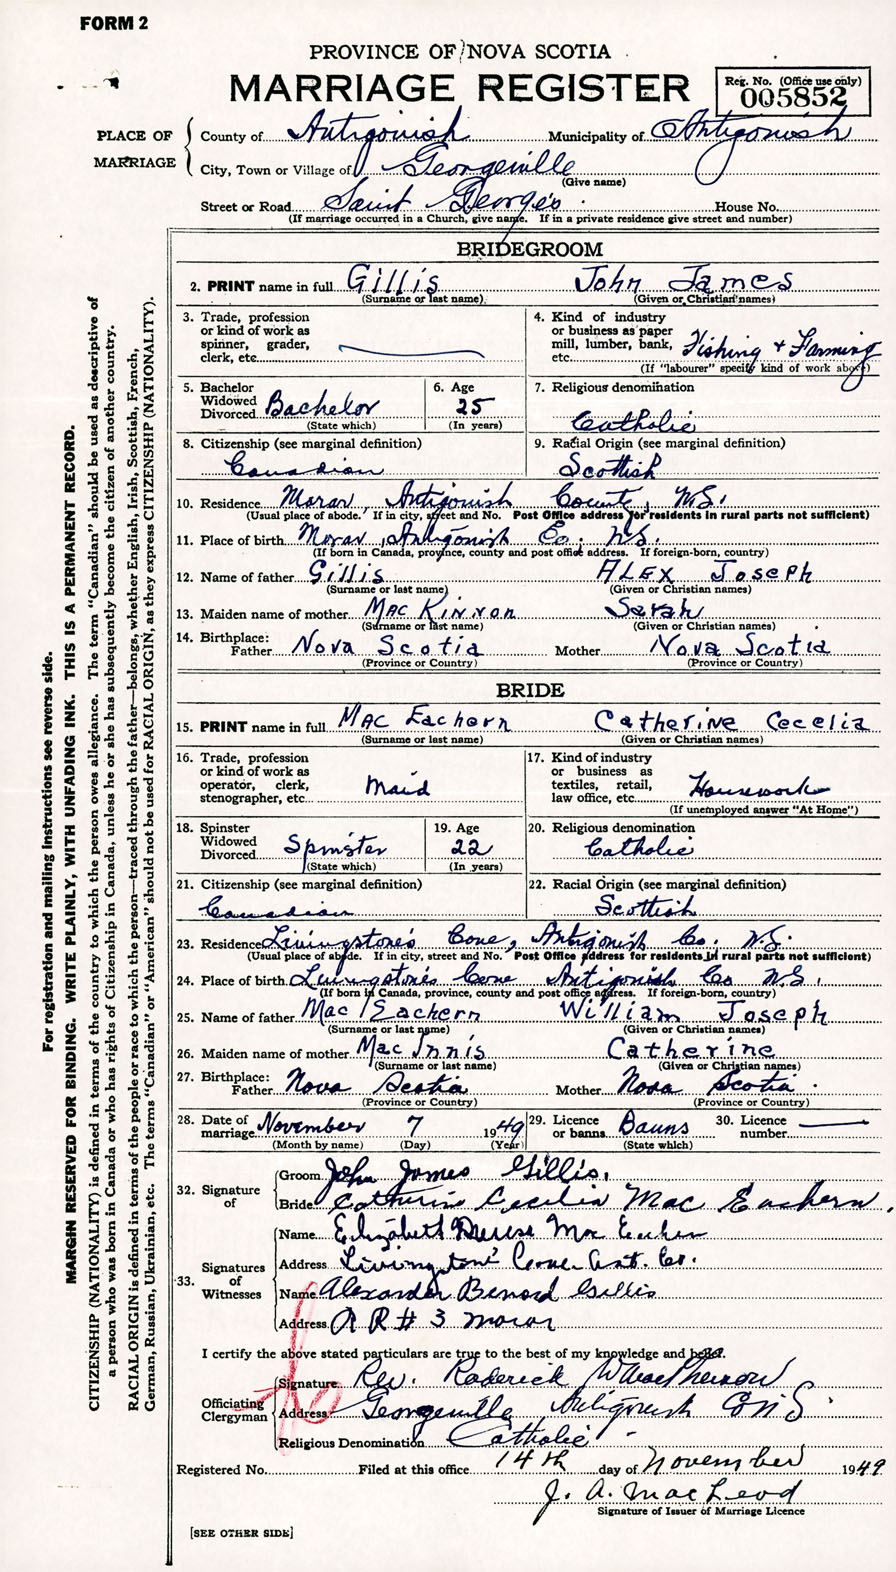 FORM 2
PROVINCE OF NOVA SCOTIA
MARRIAGE REGISTER
Reg. No. (Office use only)
005852
PLACE OF MARRIAGE
County of Antigonish Municipality of Antigonish
City, Town or Village of Georgeville
(Give name)
Street or Road Saint George's House No.
(If marriage occurred in a Church, give name. If in a private residence give street and number)
BRIDEGROOM
2. PRINT name in full Gillis John James
(Surname or last name) (Given or Christian names)
3. Trade, profession or kind of work as spinner, grader, clerk, etc.
4. Kind of industry or business as paper mill, lumber, bank, etc. Fishing + Farming
(If "labourer" specify kind of work above)
5. Bachelor Widowed Divorced Bachelor
(State which)
6. Age 25
(In years)
7. Religious denomination
Catholic
8. Citizenship (see marginal definition)
Canadian
9. Racial Origin (see marginal definition)
Scottish
10. Residence Morar Antigonish County, N.S.
(Usual place of abode. If in city, street and No. Post Office address for residents in rural parts not sufficient)
11. Place of birth Morar, Antigonish Co. N.S.
(If born in Canada, province, county and post office address. If foreign-born, country)
12. Name of father Gillis ALEX Joseph
(Surname or last name) (Given or Christian names)
13. Maiden name of mother MacKinnon Sarah
(Surname or last name) (Given or Christian names)
14. Birthplace: Father Nova Scotia Mother Nova Scotia
(Province or Country) (Province or Country)
BRIDE
15. PRINT name in full Mac Eachern Catherine Cecelia
(Surname or last name) (Given or Christian names)
16. Trade, profession or kind of work as operator, clerk, stenographer, etc. Maid
17. Kind of industry or business as textiles, retail, law office, etc. Housework
(If unemployed answer "At Home")
18. Spinster Widowed Divorced Spinster
(State which)
19. Age 22
(In years)
20. Religious denomination
Catholic
21. Citizenship (see marginal definition)
Canadian
22. Racial Origin (see marginal definition)
Scottish
23. Residence Livingstone's Cove, Antigonish Co. N.S.
(Usual place of abode. If in city, street and No. Post Office address for residents in rural parts not sufficient)
24. Place of birth Livingstone's Cove Antigonish Co N.S.
(If born in Canada, province, county and post office address. If foreign-born, country)
25. Name of father Mac Eachern William Joseph
(Surname or last name) (Given or Christian names)
26. Maiden name of mother Mac Innis Catherine
(Surname or last name) (Given or Christian names)
27. Birthplace: Father Nova Scotia Mother Nova Scotia.
(Province or Country) (Province or Country)
28. Date of marriage November 7 1949
(Month by name) (Day) (Year)
29. Licence or banns Banns
(State which)
30. Licence number
32. Signature of
Groom John James Gillis.
Bride Catherine Cecilia Mac Eachern.
33. Signatures of Witnesses
Name Elizabeth Mac Eachern
Address Livingstone' Cove Ant. Co.
Name Alexander Benard Gillis
Address R R # 3 Morar
I certify the above stated particulars are true to the best of my knowledge and belief.
Officiating Clergyman
Signature Rev. Roderick
Address Georgeville Antigonish Co N S
Religious Denomination Catholic
Registered No. Filed at this office 14th day of November 1949
J. A. MacLeod
Signature of Issuer of Marriage Licence
[SEE OTHER SIDE]
For registration and mailing instructions see reverse side.
MARGIN RESERVED FOR BINDING. WRITE PLAINLY, WITH UNFADING INK. THIS IS A PERMANENT RECORD.
CITIZENSHIP (NATIONALITY) is defined in terms of the country to which the person owes allegiance. The term "Canadian" should be used as descriptive of
a person who was born in Canada or who has rights of Citizenship in Canada, unless he or she has subsequently become the citizen of another country.
RACIAL ORIGIN is defined in terms of the people or race to which the person—traced through the father—belongs, whether English, Irish, Scottish, French,
German, Russian, Ukrainian, etc. The terms "Canadian" or "American" should not be used for RACIAL ORIGIN, as they express CITIZENSHIP (NATIONALITY).